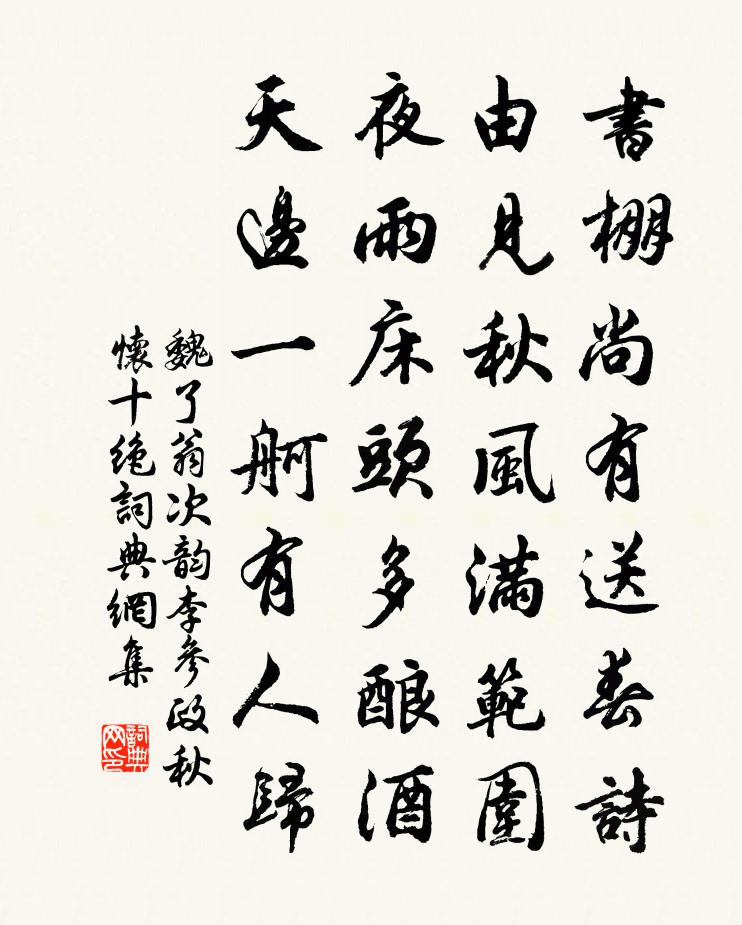 書棚尚有送春詩
由見秋風滿範圍
夜雨床頭多酿酒
天邊一舸有人歸
魏了翁次韵李參政秋
懷十绝詞典網集
詞典網印